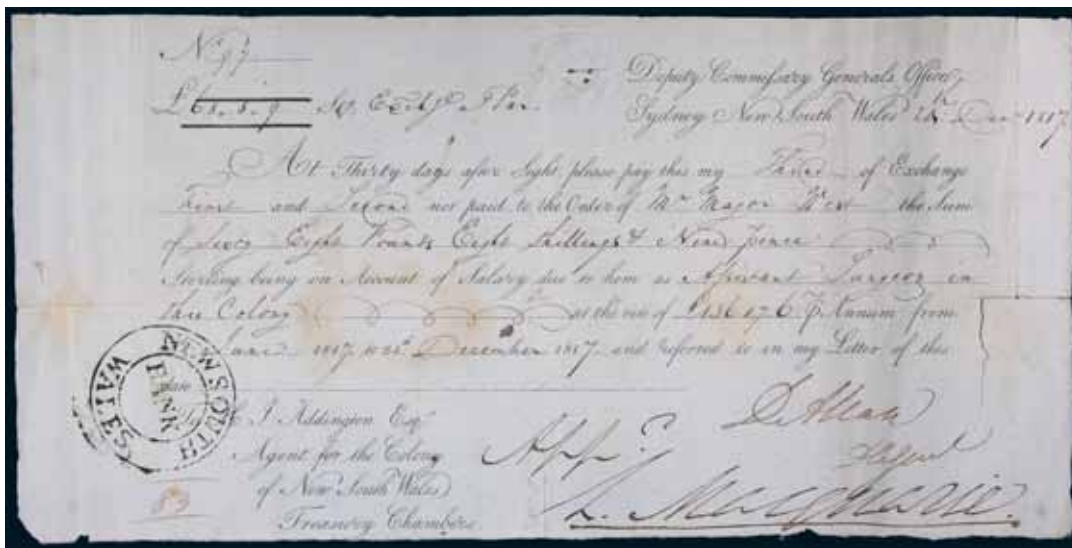 Deputy Commissary Generals Office,
£68.8.9
Sydney New South Wales 24th Decr 1817
At Thirty days after Sight please pay this my Third of Exchange
First and Second not paid to the Order of Mr Major West the Sum
of Sixty Eight Pounds Eight Shillings & Nine Pence
Sterling being on Account of Salary due to him as Assistant Surgeon in
this Colony at the rate of £136.17.6 P Annum from
June 1817 to Decmber 1817 and referred to in my Letter of this
date
NEW SOUTH WALES
BANK
To
J. Addington Esqr
Agent for the Colony
of New South Wales
Treasury Chambers
Appd
D. Allan
L. Macquarie.
83